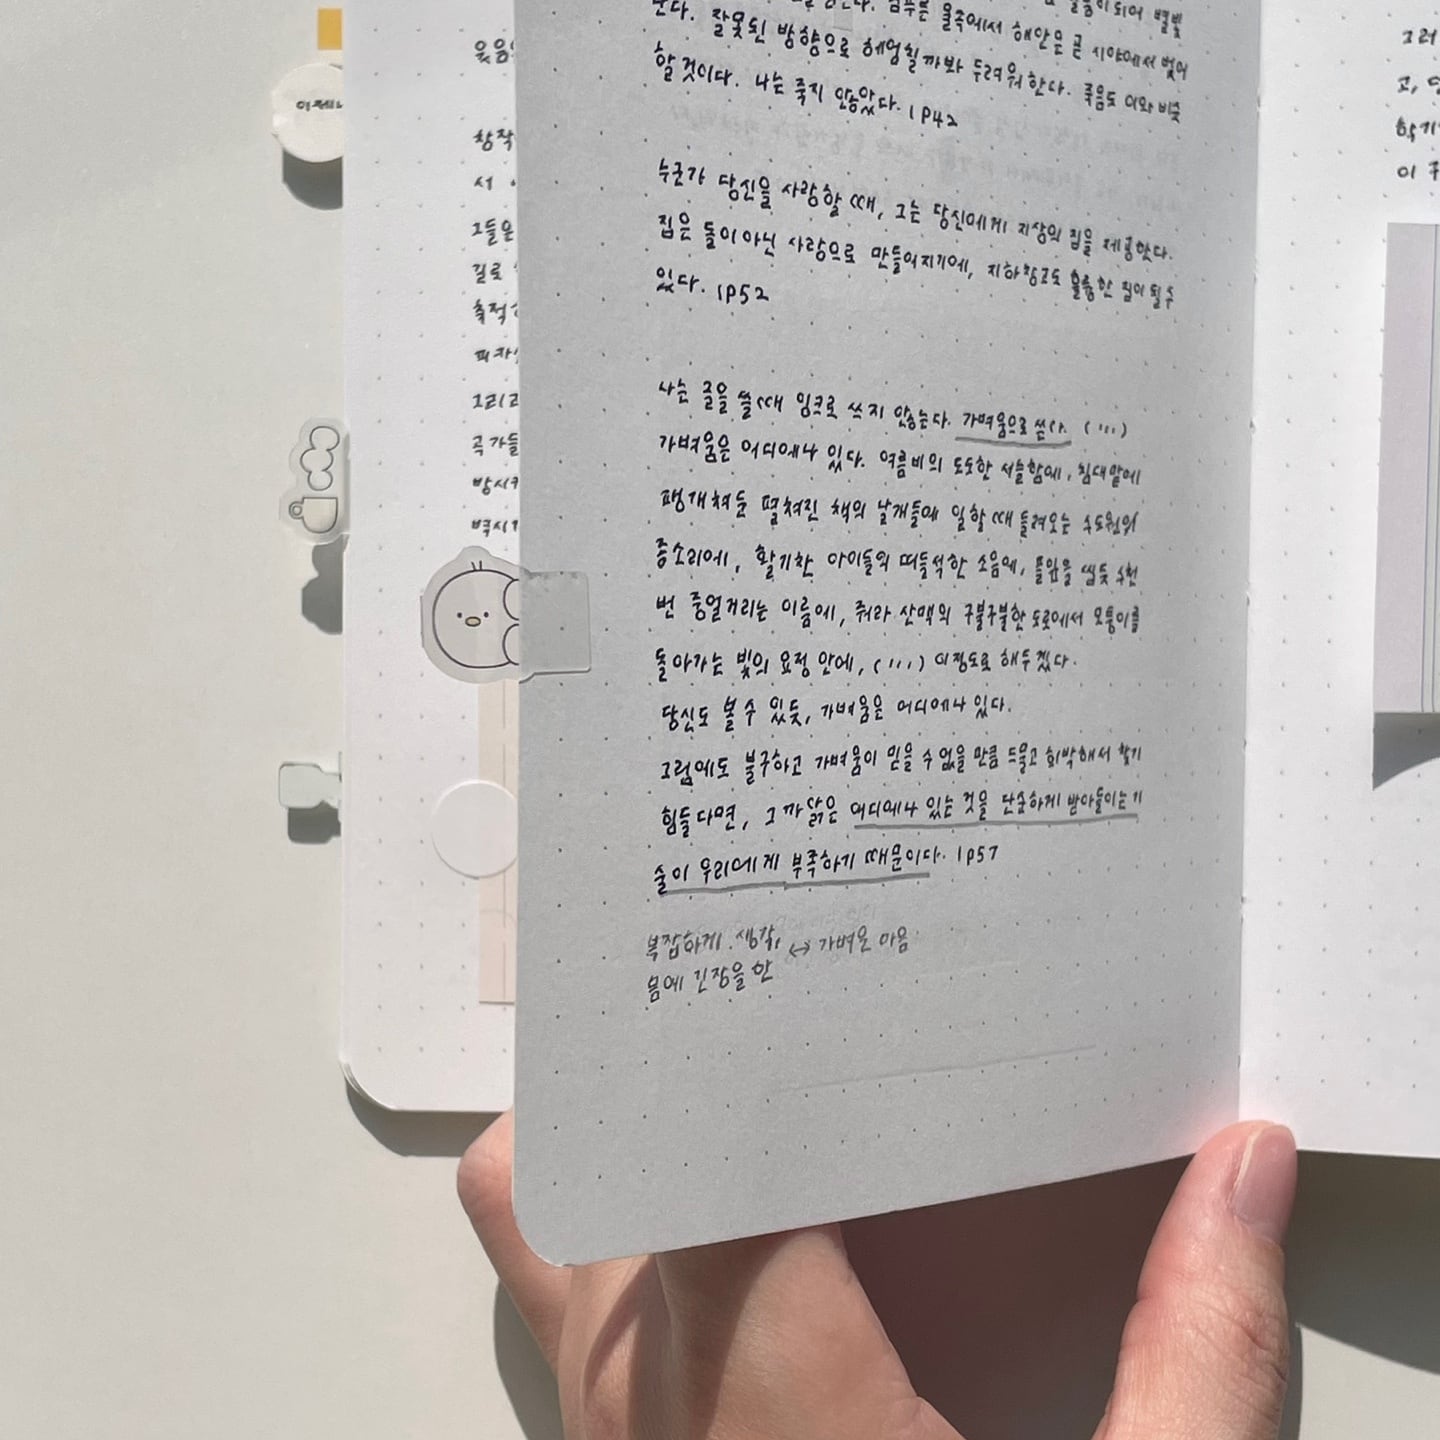 이제
웃음
창작
서
그들은
길로
축적
피자
그리고
곡 가들
방시키
벽시
되어 별빛
른다. 잘못된 방향으로 헤엄칠까봐 두려워 한다. 죽음도 이와 비슷
물속에서 해안은 곧 시야에서 벗어
할 것이다. 나는 죽지 않았다. 1P42
누군가 당신을 사랑할 때, 그는 당신에게 지상의 집을 제공한다.
집은 돌이 아닌 사랑으로 만들어지기에, 지하창고도 훌륭한 집이 될 수
있다. 1P52
나는 글을 쓸 때 잉크로 쓰지 않는다. 가벼움으로 쓴다. (...)
가벼움은 어디에나 있다. 여름 비의 도도한 서늘함에, 침대맡에
팽개쳐둔 펼쳐진 책의 날개들에 일할 때 들려오는 수도원의
종소리에, 활기찬 아이들의 떠들석한 소음에, 풀잎을 씹듯 수천
번 중얼거리는 이름에, 쥐라 산맥의 구불구불한 도로에서 모퉁이를
돌아가는 빛의 요정 안에, (...) 이정도로 해두겠다.
당신도 볼 수 있듯, 가벼움은 어디에나 있다.
그럼에도 불구하고 가벼움이 믿을 수 없을 만큼 드물고 희박해서 찾기
힘들다면, 그 까닭은 어디에나 있는 것을 단순하게 받아들이는 기
술이 우리에게 부족하기 때문이다. 1p57
복잡하게 생각, ↔ 가벼운 마음
몸에 긴장을 한
그러
고,
학기
이